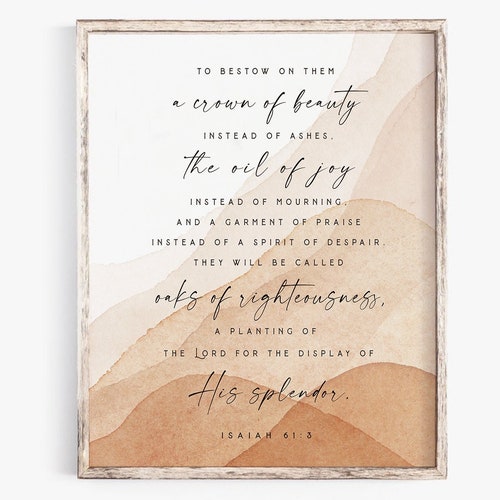 TO BESTOW ON THEM
a crown of beauty
INSTEAD OF ASHES,
the oil of joy
INSTEAD OF MOURNING,
AND A GARMENT OF PRAISE
INSTEAD OF A SPIRIT OF DESPAIR.
THEY WILL BE CALLED
oaks of righteousness,
A PLANTING OF
THE LORD FOR THE DISPLAY OF
His splendor.
ISAIAH 61:3